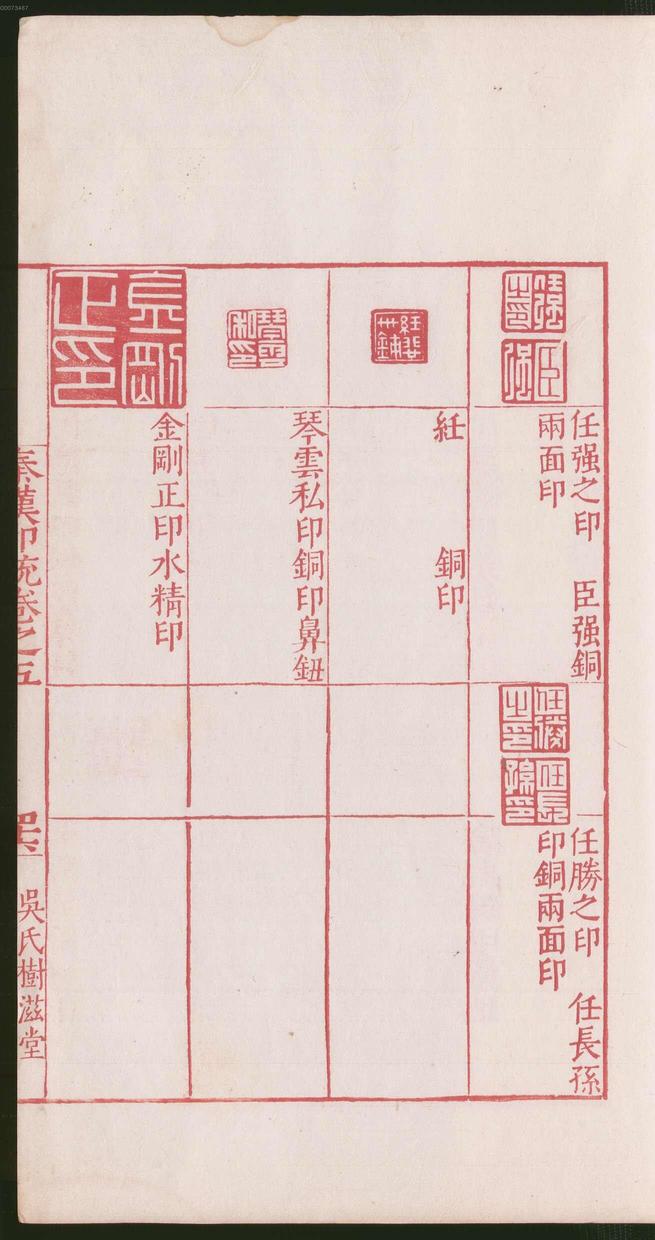 任强之印　臣强銅
兩面印
任勝之印　任長孫
印銅兩面印
紝　銅印
琴雲私印銅印鼻鈕
金剛正印水精印
秦漢印統卷之五
吳氏樹滋堂
00073467